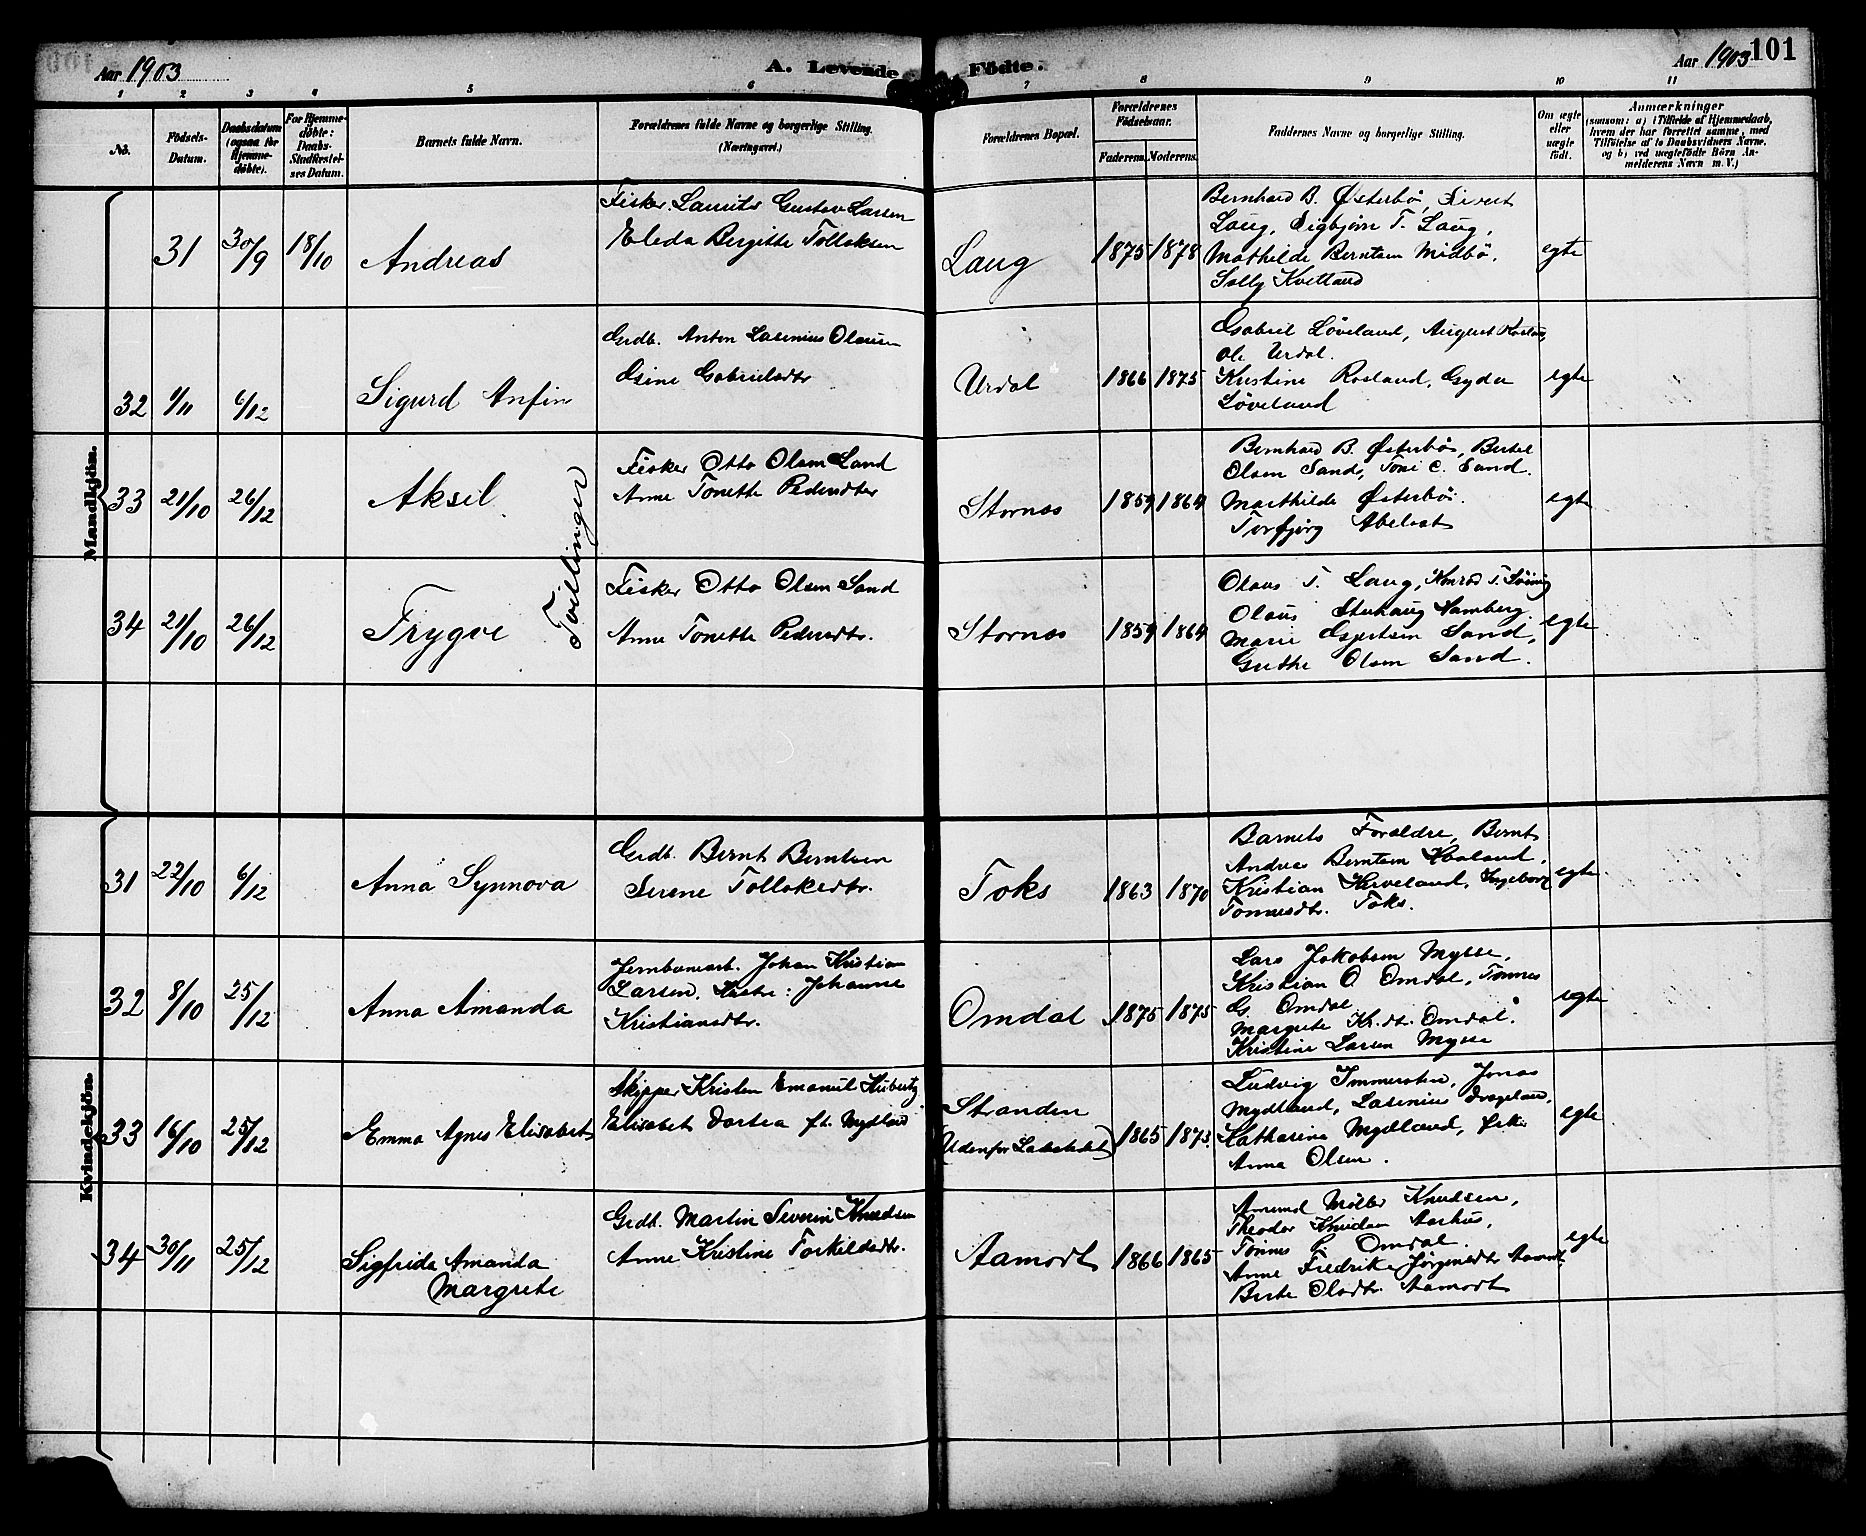 Aar 1903
A. Levende Födte.
Aar 1903
101
1 2 3 4 5 6 7 8 9 10 11
No.
Födsels-
Datum.
Daabsdatum
(ogsaa for
Hjemme-
döbte).
For Hjemme-
döbte:
Daabs-
Stadfæstel-
ses Datum.
Barnets fulde Navn.
Forældrenes fulde Navne og borgerlige Stilling.
(Næringsvei.)
Forældrenes Bopæl.
Forældrenes
Födselsaar.
Faderens. Moderens.
Faddernes Navne og borgerlige Stilling.
Om ægte
eller
uægte
født.
Anmærkninger
(saasom: a) i Tilfælde af Hjemmedaab,
hvem der har forrettet samme, med
Tilføielse af to Daabsvidners Navne,
og b) ved uægtefødte Börn An-
melderens Navn m. V.)
Mandkjön.
31 30/9 18/10 Andreas
Fisker Lauritz Gustav Larsen
Eleda Bergitte Tollaksen
Laug 1875 1878
Bernhard B. Østerbø, Sivert
Laug, Sigbjørn T. Laug,
Mathilde Berntsen Midbö,
Solly Kvelland
egte
32 1/11 6/12 Sigurd Anfin
Grdb. Anton Lasenius Olausen
Osine Gabrielsdtr
Urdal 1866 1875
Gabriel Løveland, August
Ole Urdal.
Kristine Rosland, Gyda
Løveland
egte
33 21/10 26/12 Aksel
Tvillinger
Fisker Otto Olsen Sand
Anne Tonette Pedersdter
Stornæs 1859 1864
Bernhard B. Østerbø, Bertel
Olsen Sand, Toni C. Sand.
Marthilde Østerbø.
Torbjørg Abelsat
egte
34 21/10 26/12 Trygve
Fisker Otto Olsen Sand
Anne Tonette Pedersdtr.
Stornæs 1859 1864
Olaus T. Laug, Konrad T.
Olaus Stuhaug Hamberg
Marie Espertsen Sand,
Grethe Olsen Sand.
egte
Kvindekjön.
31 22/10 6/12 Anna Synnova
Grdb. Bernt Berntsen
Serene Tollaksdtr.
Foks 1863 1870
Barnets Forældre, Bernt
Andreas Berntsen Haaland,
Kristian Herveland, Ingeborg
Tønnesdtr. Foks.
egte
32 8/10 25/12 Anna Amanda
Jernbanearb. Johan Kristian
Larsen, Hustru: Johanne
Kristiansdtr.
Omdal 1875 1875
Lars Jakobsen Mysse,
Kristian O Omdal, Tønnes
G. Omdal
Margrete Kr.dtr. Omdal.
Kristine Larsen Mysse
egte
33 16/10 25/12 Emma Agnes Elisabet
Skipper Kristen Emanuel Hubertz
Elisabet Dortea ft. Mydland
Stranden
(Udenfor Ladestedet) 1865 1873
Ludvig Immerstein, Jonas
Mydland, Lasenius Drageland,
Katharina Mydland,
Anna Olsen.
egte
34 30/11 25/12 Sigfrida Amanda
Margrete
Grdb. Martin Severin Knudsen
Anne Kristine Torkildsdtr.
Aamodt 1866 1865
Amund Möller Knudsen,
Theodor Knudsen Aarhus,
Tönnes G. Omdal.
Anne Fredrikke Jörgensdtr Aamodt
Berte Olsdtr. Aamodt
egte